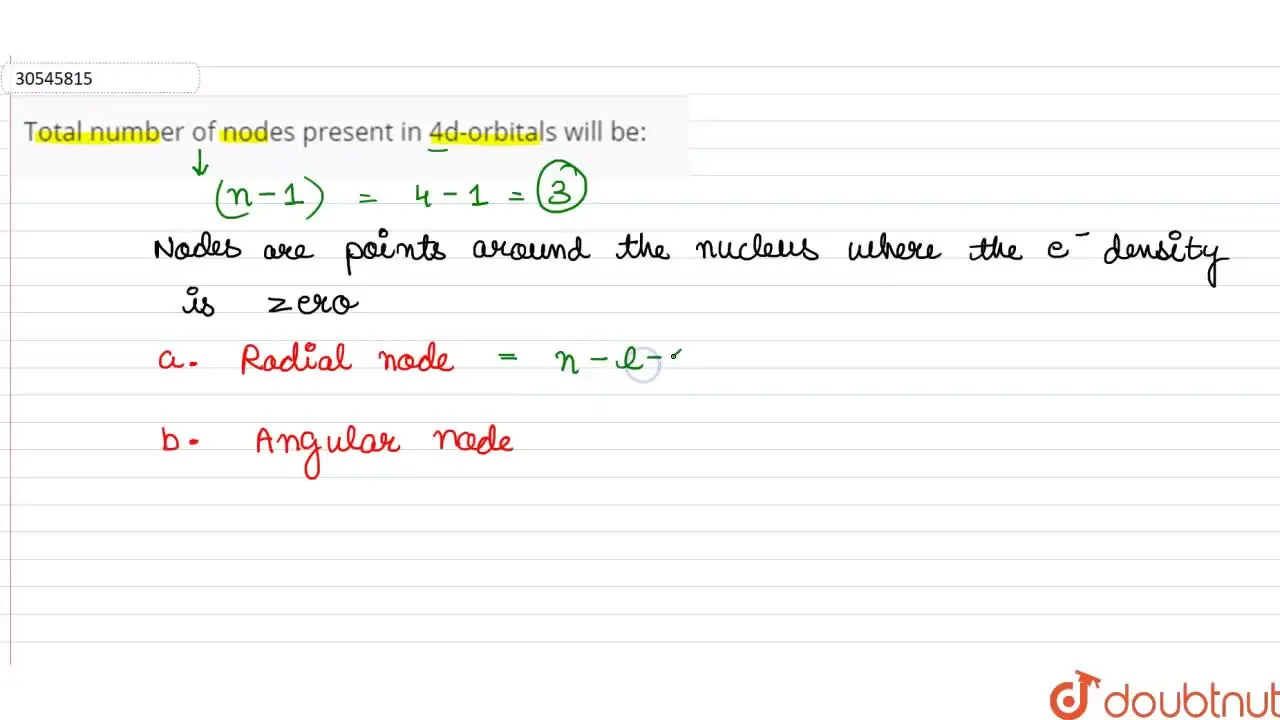 30545815
Total number of nodes present in 4d-orbitals will be:
(n-1) = 4-1 = 3
Nodes are points around the nucleus where the e⁻ density
is zero
a. Radial node = n-l-
b. Angular node
doubtnut